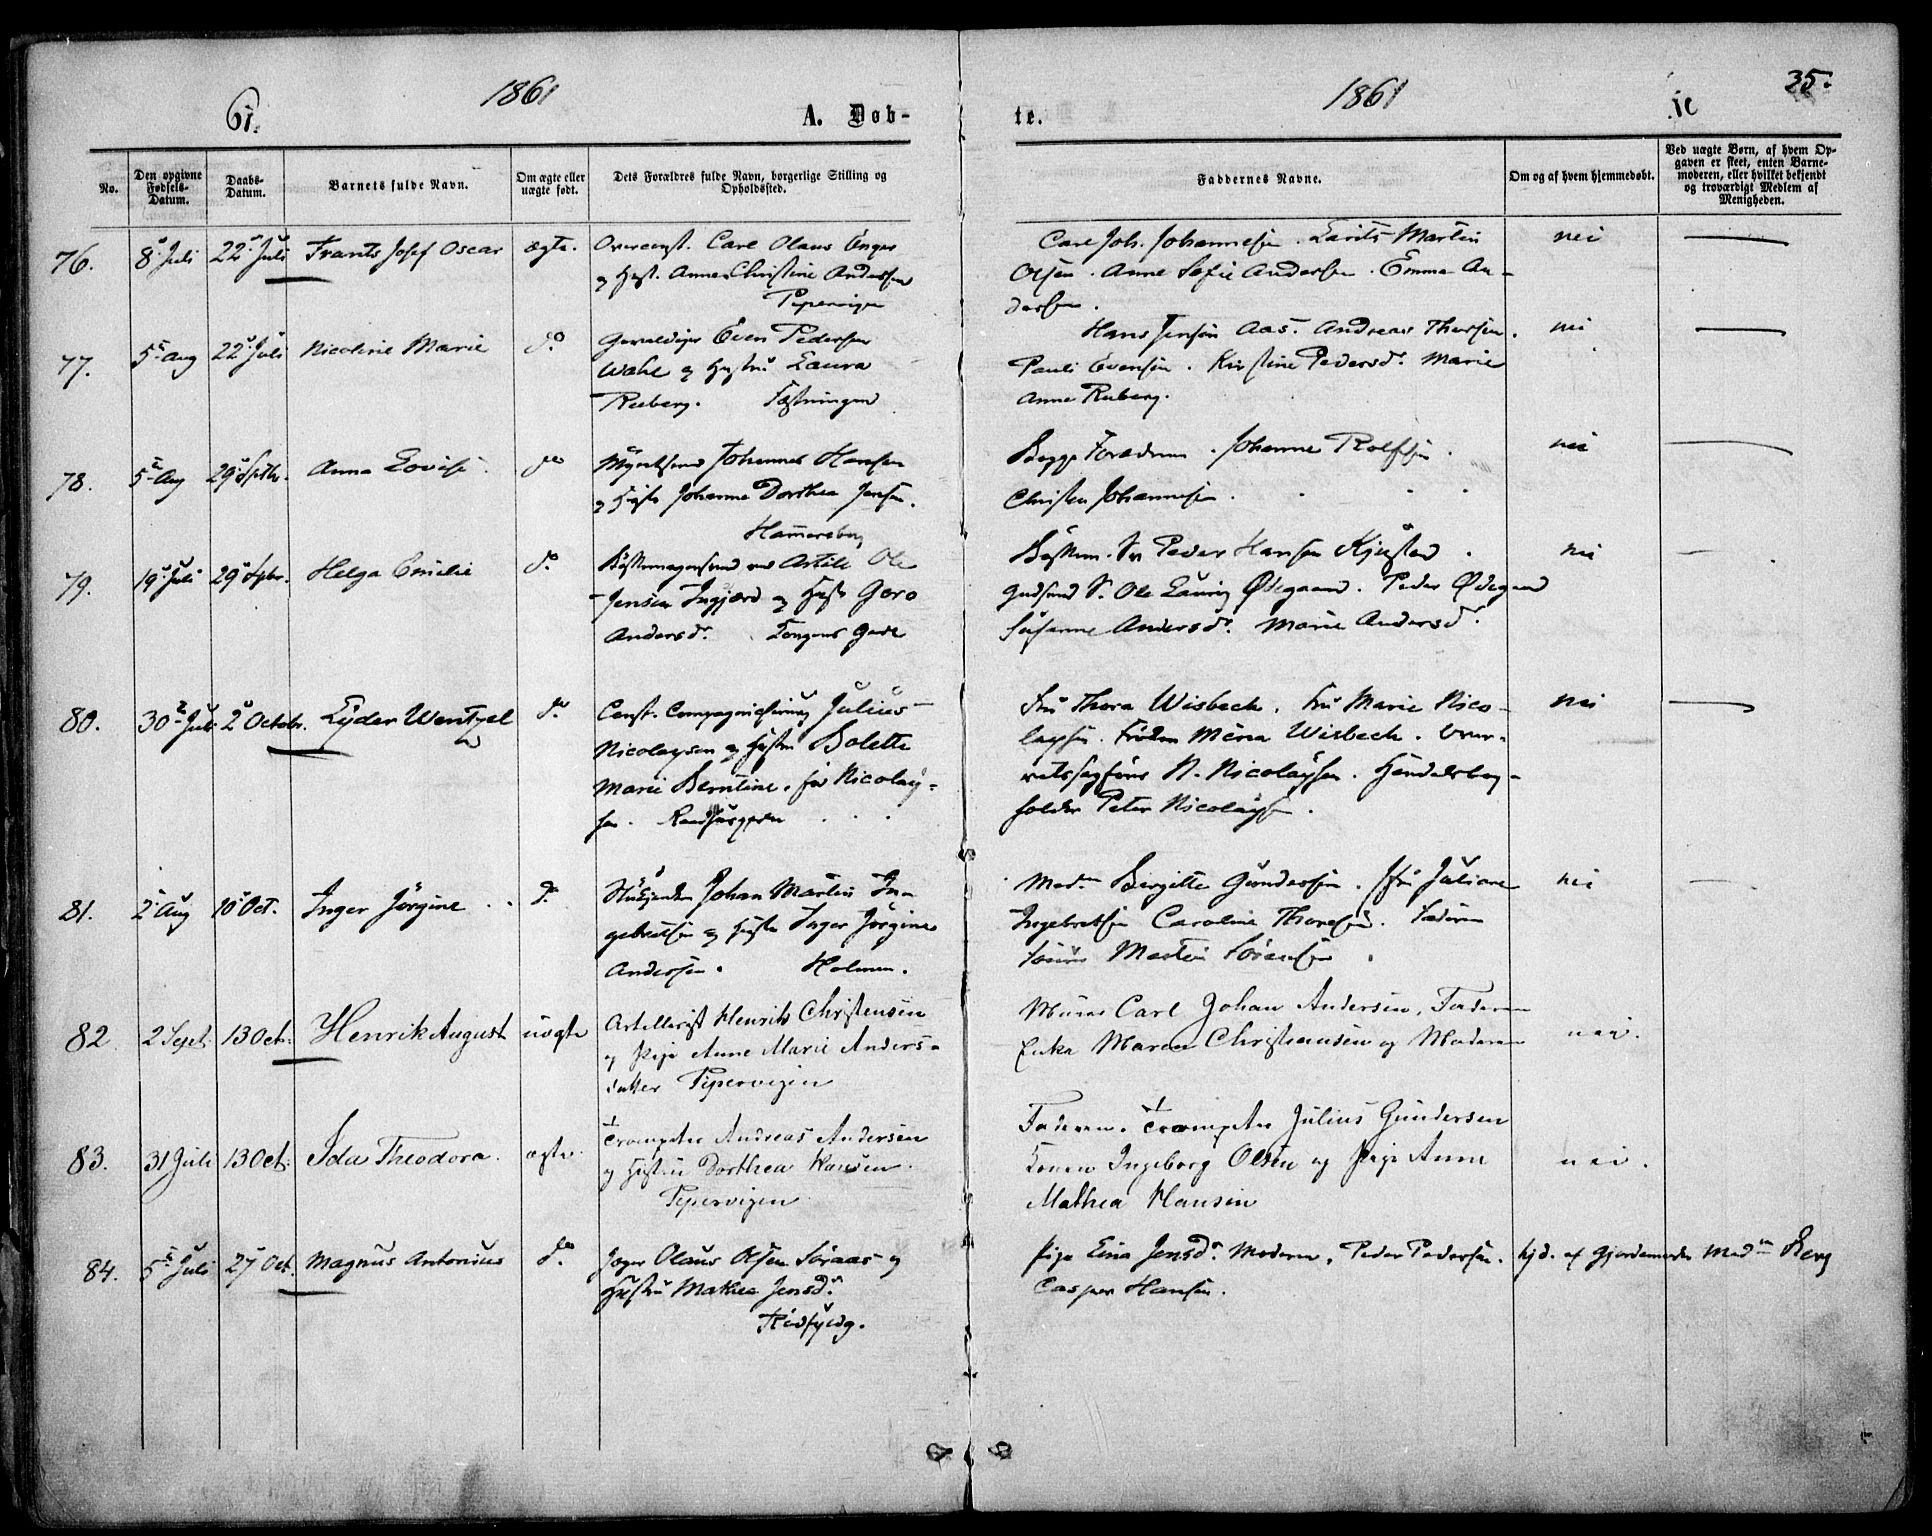 1861
1861
35.
A. Døb-
te.
No.
Den opgivne Fødsels-Datum.
Daabs-Datum.
Barnets fulde Navn.
Om ægte eller uægte født.
Dets Forældres fulde Navn, borgerlige Stilling og Opholdssted.
Faddernes Navne.
Om og af hvem hjemmedøbt.
Ved uægte Børn, af hvem Opgaven er skeet, enten Barnemoderen, eller hvilket bekjendt og troværdigt Medlem af Menigheden.
76. 8 Juli 22 Juli Frants Josef Oscar ægte. Carl Olaus Enger
Anne Christine Andersen
Pipervigen
Carl Joh. Johannesen. Martin
Olsen. Anne Sofie Andersen. Emma An-
dersen.
nei
77. 5 Aug 22 Juli Nicoline Marie do Even Pedersen
Wahl og Hustru Laura
Reeberg. Fæstningen
Hans Jensen Aas. Andreas Thorsen.
Pauli Evensen. Kirstine Pedersd. Marie
Anne Reeberg.
nei
78. 5 Aug 29 Septb. Anna Lovise do Johannes Hansen
Johanne Dorthea Jensen.
Hamersborg
Begge Forældrene. Johanne Rolfsen.
Christen Johannesen.
nei
79. 19 Juli 29 Spbr. Helga Emilie do ved Artill. Ole
Jensen Ingjærd og Hust. Goro
Andersd. Gade
Peder Hansen Kjustad.
Ole Ødegaard. Peder Ødegaard
Susanne Andersd. Marie Andersd.
nei
80. 30 Juli 2 Octob. Eyder Wentzel do Const. Compagnichirurg Julius
Nicolaysen og Hustru Bolette
Marie Berntine, før Nicolay-
sen.
Fru Thora Wisbech. Fru Marie Nico-
laysen. Frøken Mina Wisbech. Over-
retssagfører N. Nicolaysen. Handelsbog-
holder Peter Nicolaysen.
nei
81. 2 Aug 10 Oct. Inger Jørgine do Johan Martin In-
gebretsen og Hustru Inger Jørgine
Andersen. Holmen.
Mad. Birgitte Gundersen. Fru Juliane
Ingebretsen Caroline Thoresen. Faderen
Martin Sørensen
nei
82. 2 Sept. 13 Oct. Henrik August uægte Artillerist Henrik Christensen
og Pige Anne Marie Anders-
datter Pipervigen
Murer Carl Johan Andersen, Faderen
Enke Maren Christiansen og Moderen
nei.
83. 31 Juli 13 Oct. Ida Theodora. ægte. Trompeter Andreas Andersen
og Hustru Dorthea Hansen.
Pipervigen
Faderen. Trompeter Julius Gundersen
Konen Ingeborg Olsen og Pige Anne
Mathea Hansen
nei.
84. 5 Juli 27 Oct. Magnus Antonius do Jæger Olaus Olsen Soraas og
Hustru Mathea Jensd.
Pige Eina Jensd. Moderen, Peder Pedersen. hjd. af Gjordemoder Mad. Berg
Casper Hansen.